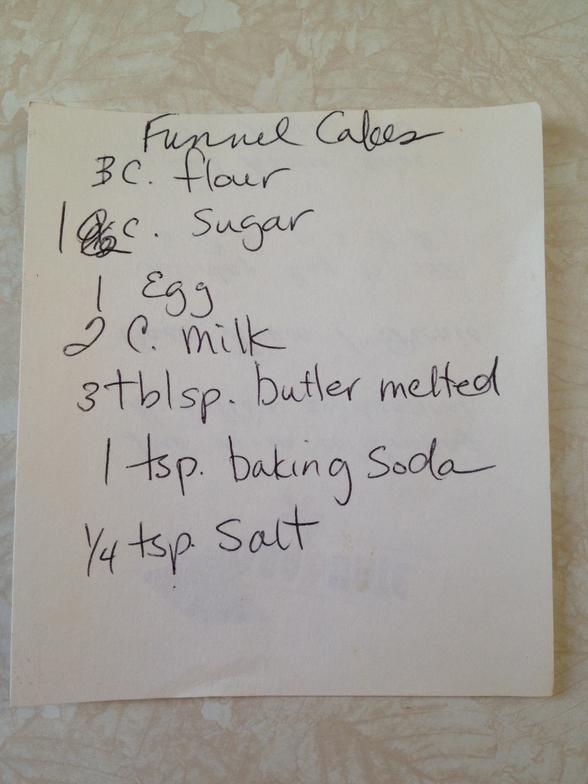 Funnel Cakes
3 C. flour
1 C. Sugar
1 Egg
2 C. milk
3 tblsp. butter melted
1 tsp. baking Soda
1/4 tsp. Salt